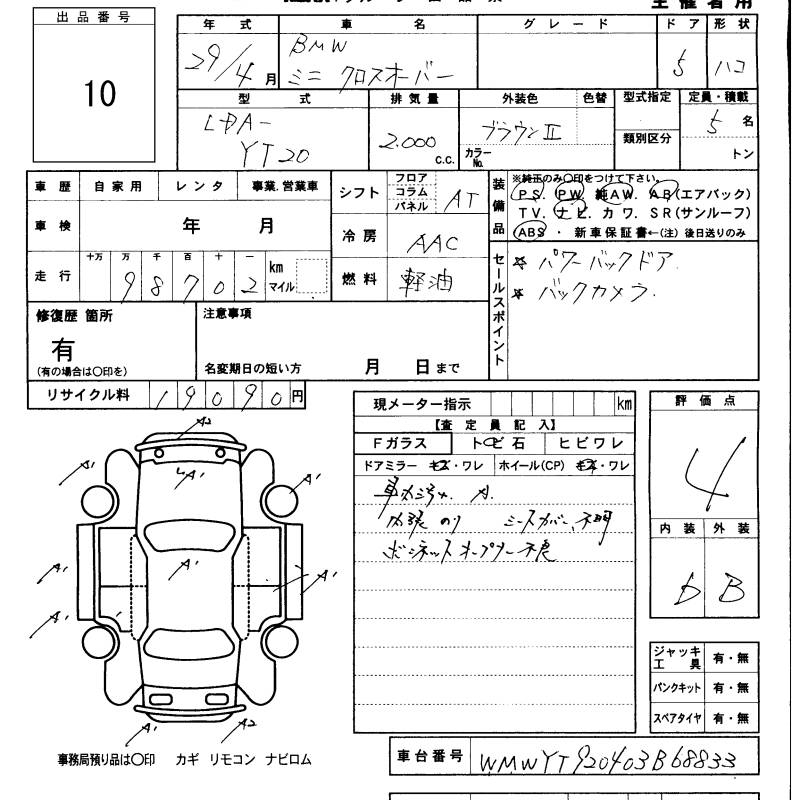 主催者用
出品番号
10
年式 車名 グレード ドア 形状
29/4月 BMW ミニ クロスオーバー 5 ハコ
型式 排気量 外装色 色替 型式指定 定員・積載
LDA-YT20 2.000 c.c. ブラウンII カラーNo. 類別区分 5名 トン
車歴 自家用 レンタ 事業.営業車
車検 年 月
走行 十万 万 千 百 十 一 km マイル
98702
シフト フロア コラム パネル AT
冷房 AAC
燃料 軽油
装備品 ※純正のみ〇印をつけて下さい。
PS. PW. 純AW. AB(エアバック)
TV. ナビ. カワ. SR(サンルーフ)
ABS ・ 新車保証書←(注) 後日送りのみ
セールスポイント
☆ パワーバックドア
☆ バックカメラ.
修復歴 箇所 注意事項
有
(有の場合は〇印を) 名変期日の短い方 月 日まで
リサイクル料 19090円
現メーター指示 km
【査定員記入】
Fガラス トビ石 ヒビワレ
ドアミラー キズ・ワレ ホイール(CP) キズ・ワレ
A.
内張 のり シートカバー、不明
ボンネットオープナー不良
評価点
4
内装 外装
b B
ジャッキ工具 有・無
パンクキット 有・無
スペアタイヤ 有・無
A2
A1 A1 A1
A1 A1 A1
A1
A1 A2
事務局預り品は〇印 カギ リモコン ナビロム
車台番号 WMWYT920403B68833